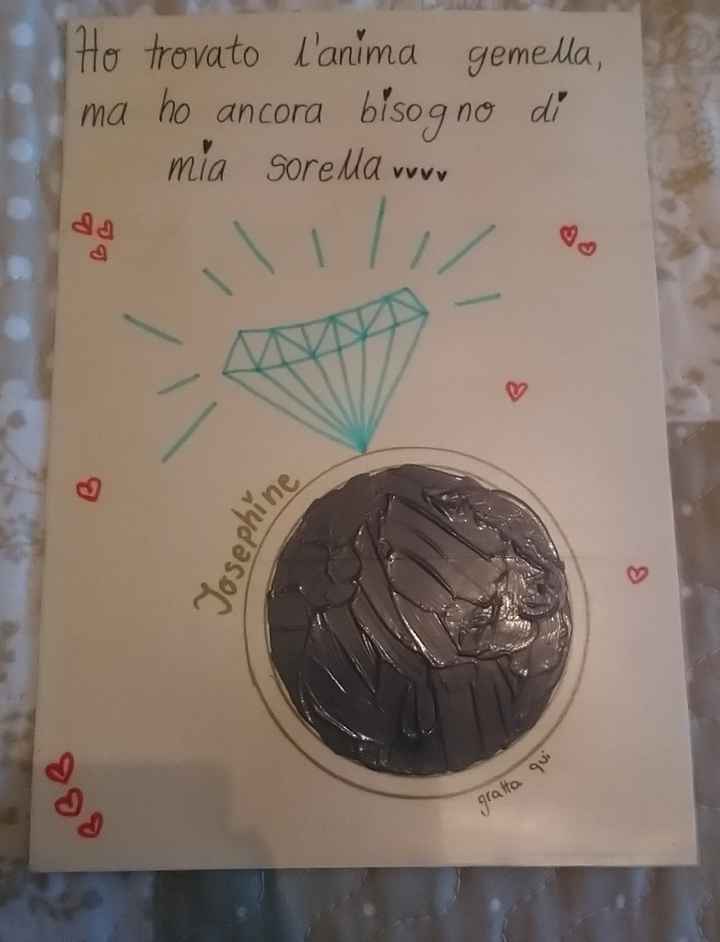 Ho trovato l'anima gemella,
ma ho ancora bisogno di
mia sorella
Josephine
gratta qui